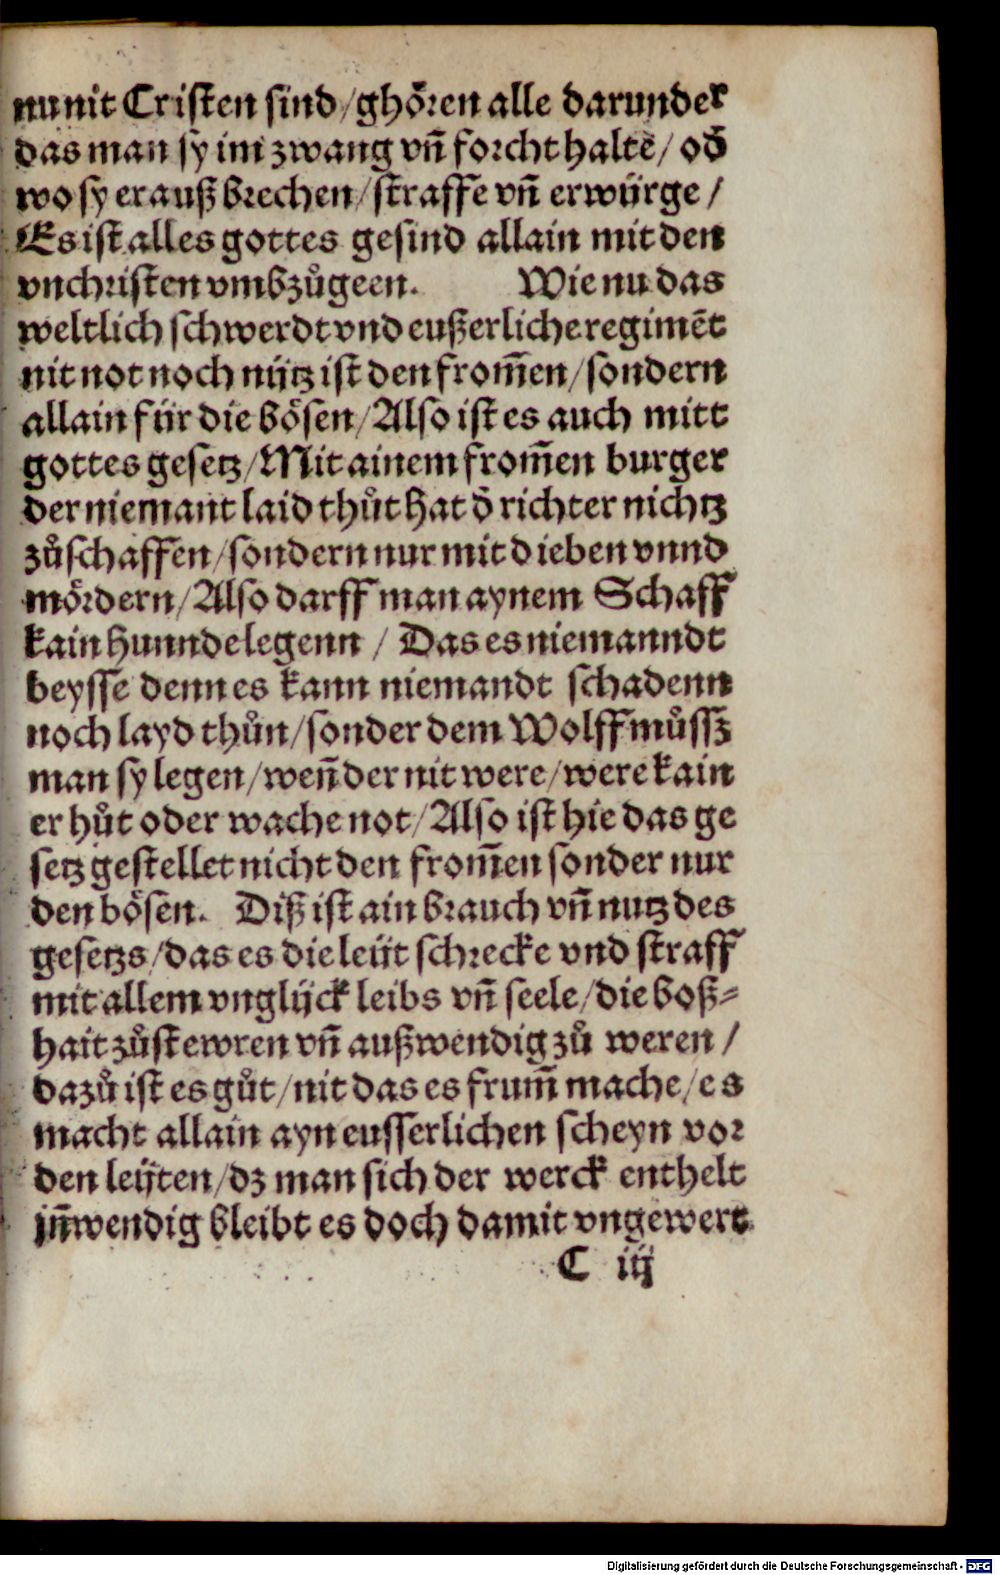 nu nit Cristen sind / ghören alle darunder
das man sy im zwang vñ forcht haltē / od̄
wo sy erauß brechen / straffe vñ erwürge /
Es ist alles gottes gesind allain mit den
vnchristen vmbzůgeen. Wie nu das
weltlich schwerdt vnd eußerliche regimēt
nit not noch nütz ist den from̄en / sondern
allain für die bösen / Also ist es auch mitt
gottes gesetz / Mit ainem from̄en burger
der niemant laid thůt hat d̄ richter nichtz
zůschaffen / sondern nur mit dieben vnnd
mördern / Also darff man aynem Schaff
kain hunnde legenn / Das es niemanndt
beysse denn es kann niemandt schadenn
noch layd thůn / sonder dem Wolff můssz
man sy legen / weñ der nit were / were kain
er hůt oder wache not / Also ist hie das ge
setz gestellet nicht den from̄en sonder nur
den bösen. Diß ist ain brauch vñ nutz des
gesetzs / das es die leüt schrecke vnd straff
mit allem vnglück leibs vñ seele / die boß⸗
hait zůstewren vñ außwendig zů weren /
dazů ist es gůt / nit das es frum̄ mache / es
macht allain ayn eusserlichen scheyn vor
den leüten / dz man sich der werck enthelt
jñwendig bleibt es doch damit vngewert
C iij
Digitalisierung gefördert durch die Deutsche Forschungsgemeinschaft - DFG